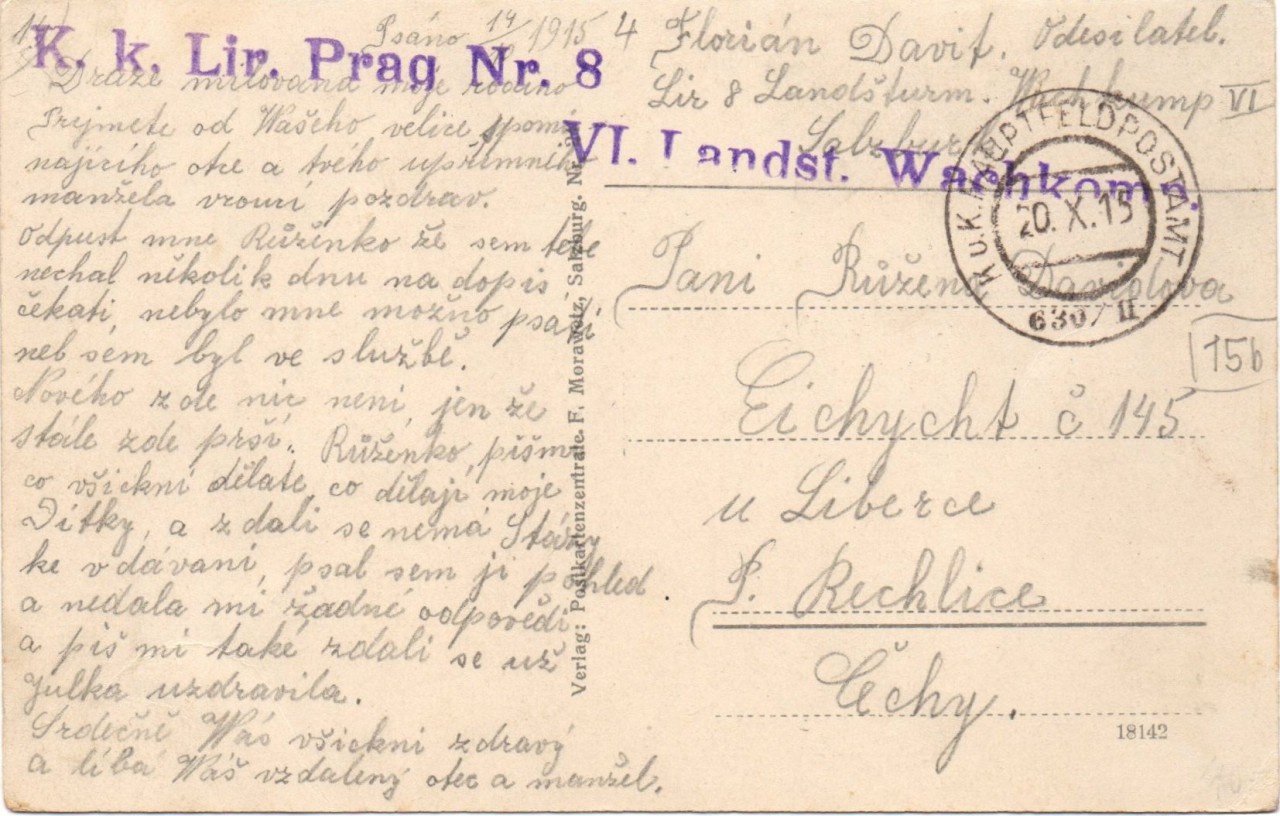 Psáno 14/ 1915
K. k. Lir. Prag Nr. 8
Draze milovaná moje rodino
Prejmete od Wašeho velice zpomí
najícího otce a tvého upřímniho
manžela vroucí pozdrav.
Odpust mne Růženko že sem tebe
nechal několik dnu na dopis
čekati, nebylo mne možno psati
neb sem byl ve službě.
Nového zde nic není, jen že
stále zde prší. Růženko, piš mi
co všickni dělate, co dělají moje
Dítky, a zdali se nemá
ke vdávaní, psal sem ji pohled
a nedala mi žadné odpovědi
a piš mi také zdali se už
Julka uzdravila.
Srdečně Wás všickni zdravý
a líbá Wáš vzdalený otec a manžel.
Verlag: Postkartenzentrale. F. Morawetz, Salzburg. Nr.
4 Florián Davit. Odesilatel.
Lir 8 Landšturm. Wach kump VI
Salzburk
VI. Landst. Wachkomp.
K. u. K. HAUPTFELDPOSTAMT
20. X. 15
630/II
Paní Růžena Davidova
15b
Eichycht č 145
u Liberce
P. Rechlice
Čechy.
18142